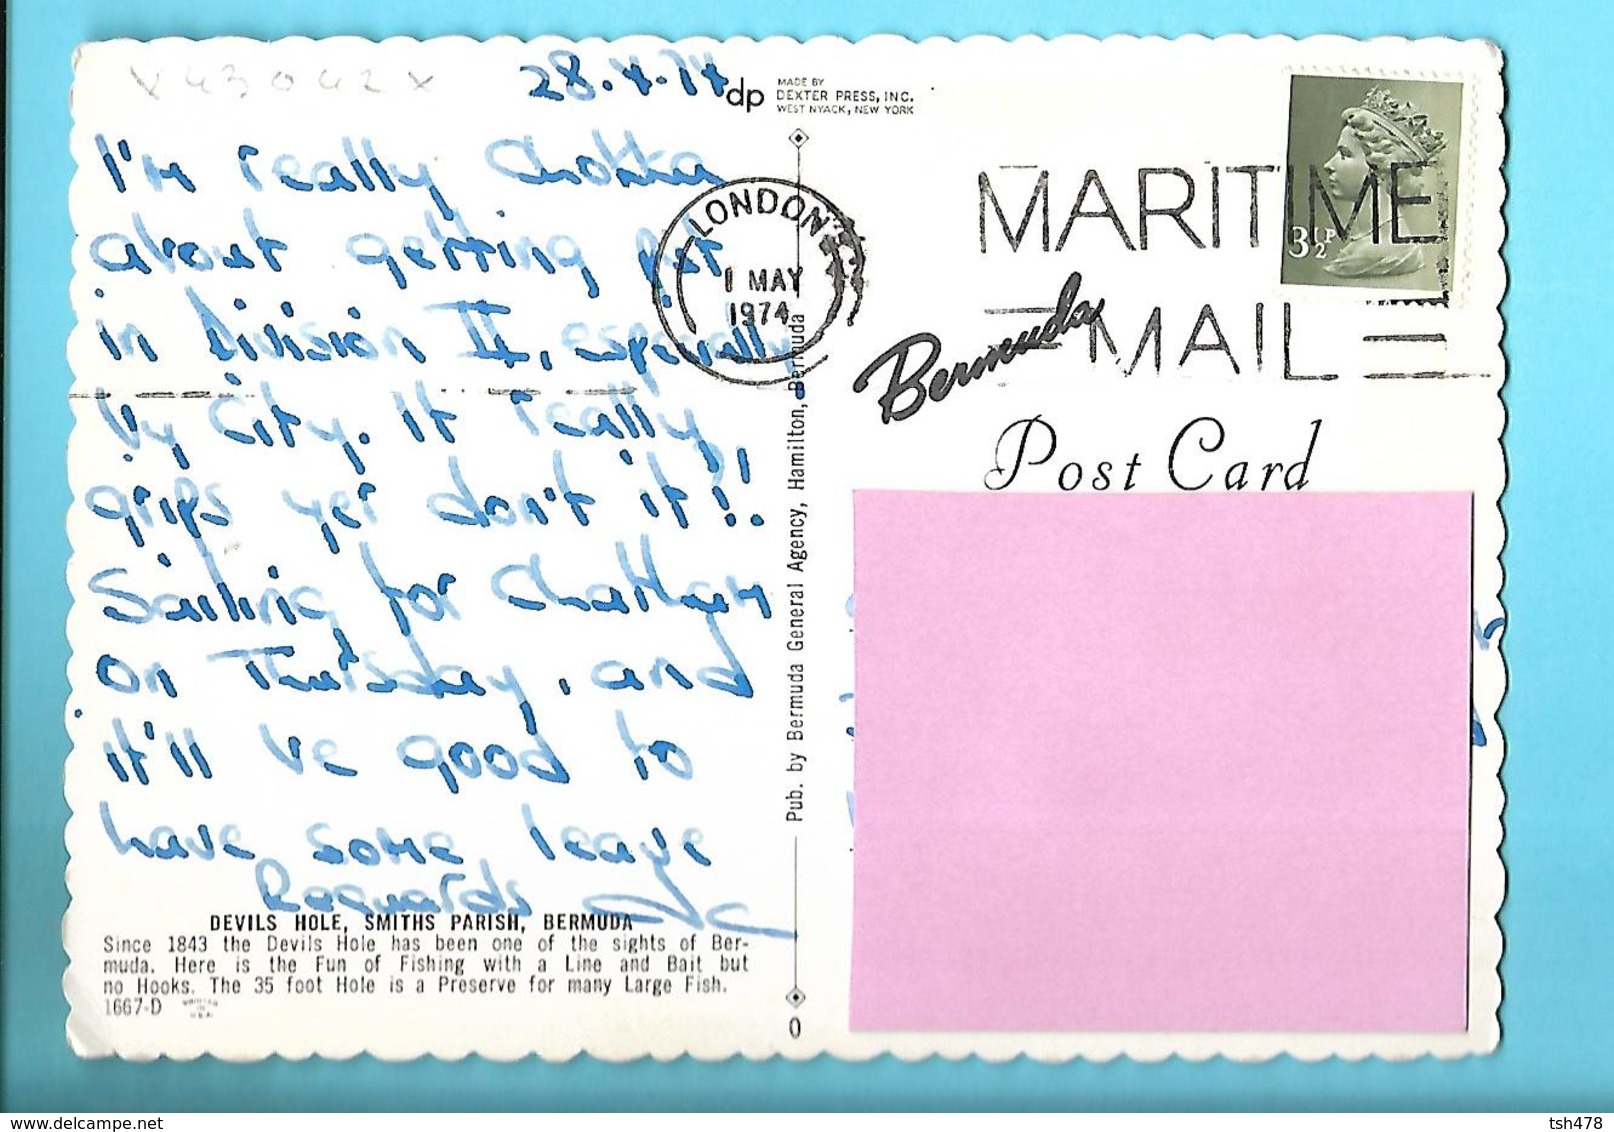 x 43042 x
28.4.74
I'm really Chokka
about getting put
in Division II, especially
by City. It really
grips yer don't it!!
Sailing for Chatham
on Thursday, and
it'll be good to
have some leave
Reguards
dp MADE BY
DEXTER PRESS, INC.
WEST NYACK, NEW YORK
LONDON
1 MAY
1974
MARITIME
MAIL
3½P
Bermuda
Post Card
Pub. by Bermuda General Agency, Hamilton, Bermuda
DEVILS HOLE, SMITHS PARISH, BERMUDA
Since 1843 the Devils Hole has been one of the sights of Ber-
muda. Here is the Fun of Fishing with a Line and Bait but
no Hooks. The 35 foot Hole is a Preserve for many Large Fish.
1667-D
0
delcampe.net
tsh478